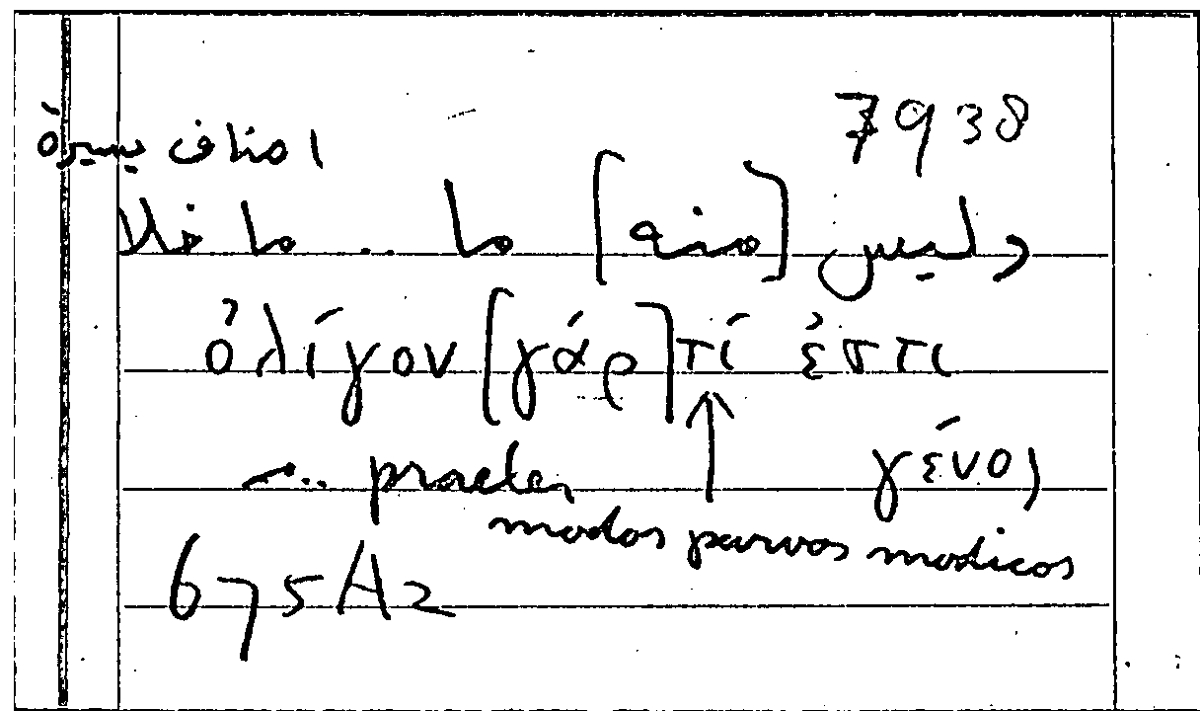 7938
اصناف يسيرة
وليس [منه] ما .. ما خلا
ὀλίγον [γάρ] τί ἐστι
... praeter γένος
modos parvos modicos
675A2